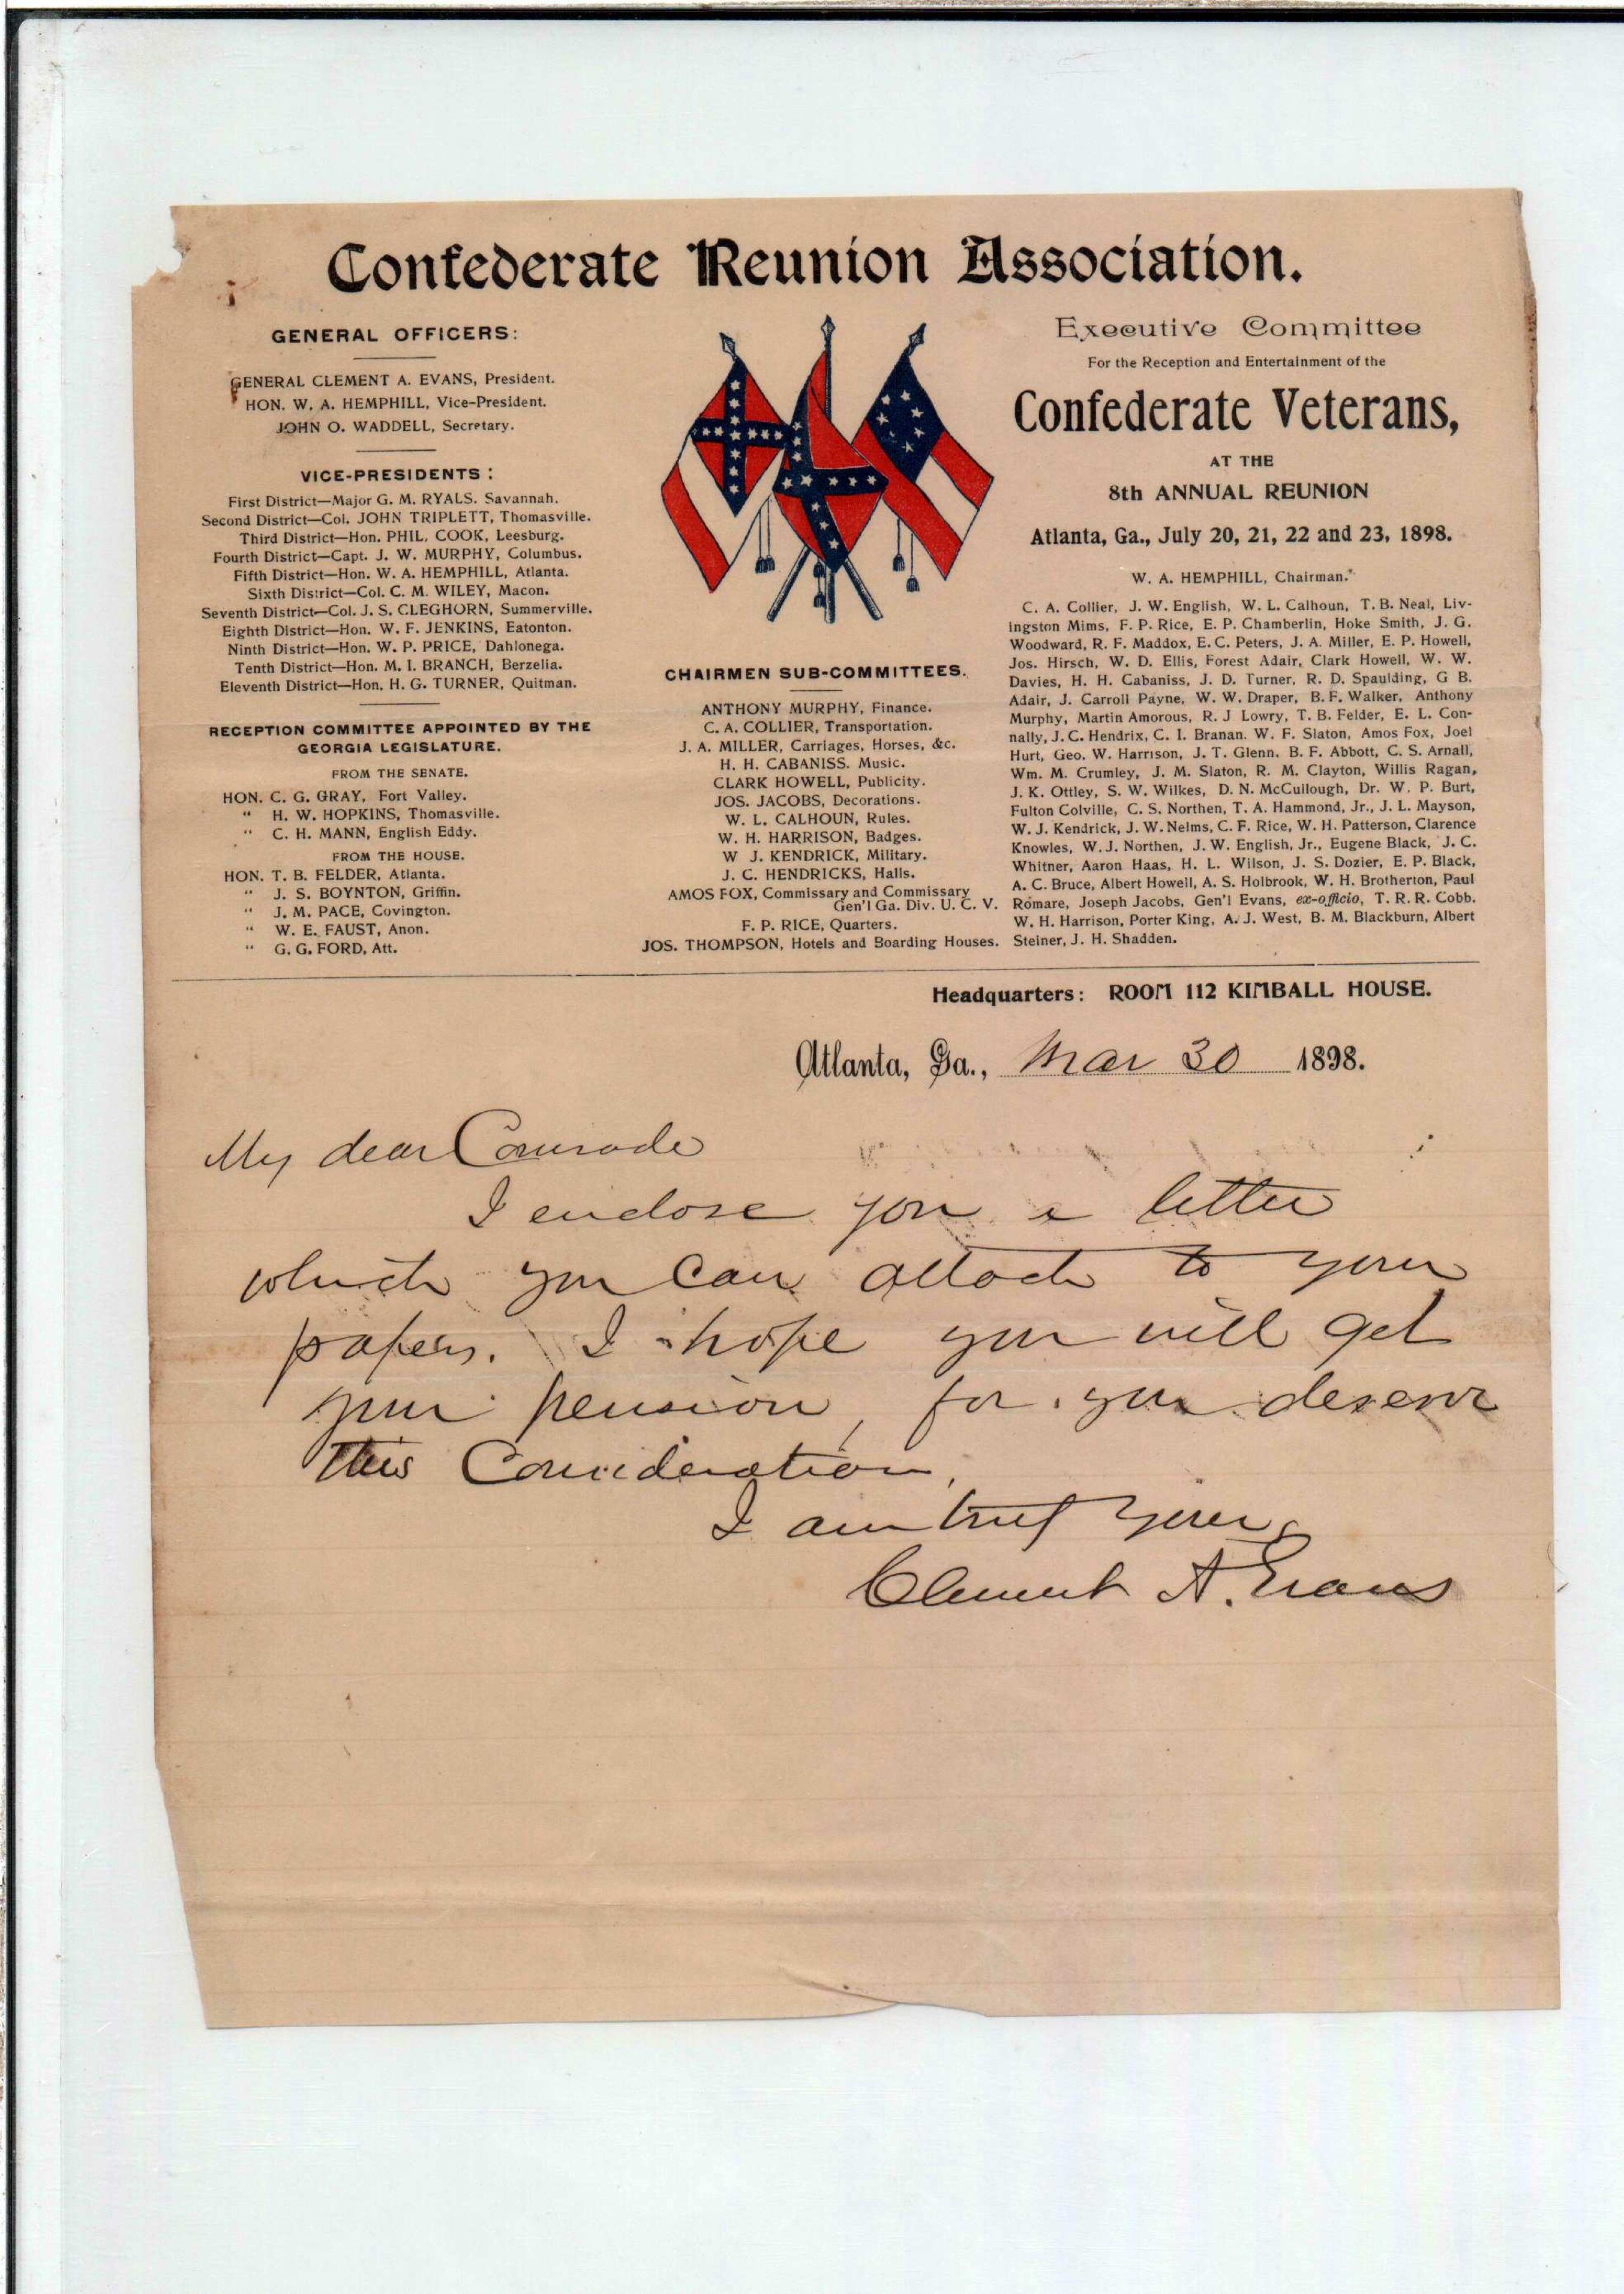 Confederate Reunion Association.
GENERAL OFFICERS:
GENERAL CLEMENT A. EVANS, President.
HON. W. A. HEMPHILL, Vice-President.
JOHN O. WADDELL, Secretary.
VICE-PRESIDENTS:
First District—Major G. M. RYALS. Savannah.
Second District—Col. JOHN TRIPLETT, Thomasville.
Third District—Hon. PHIL. COOK, Leesburg.
Fourth District—Capt. J. W. MURPHY, Columbus.
Fifth District—Hon. W. A. HEMPHILL, Atlanta.
Sixth District—Col. C. M. WILEY, Macon.
Seventh District—Col. J. S. CLEGHORN, Summerville.
Eighth District—Hon. W. F. JENKINS, Eatonton.
Ninth District—Hon. W. P. PRICE, Dahlonega.
Tenth District—Hon. M. I. BRANCH, Berzelia.
Eleventh District—Hon. H. G. TURNER, Quitman.
RECEPTION COMMITTEE APPOINTED BY THE
GEORGIA LEGISLATURE.
FROM THE SENATE.
HON. C. G. GRAY, Fort Valley.
" H. W. HOPKINS, Thomasville.
" C. H. MANN, English Eddy.
FROM THE HOUSE.
HON. T. B. FELDER, Atlanta.
" J. S. BOYNTON, Griffin.
" J. M. PACE, Covington.
" W. E. FAUST, Anon.
" G. G. FORD, Att.
CHAIRMEN SUB-COMMITTEES.
ANTHONY MURPHY, Finance.
C. A. COLLIER, Transportation.
J. A. MILLER, Carriages, Horses, &c.
H. H. CABANISS. Music.
CLARK HOWELL, Publicity.
JOS. JACOBS, Decorations.
W. L. CALHOUN, Rules.
W. H. HARRISON, Badges.
W J. KENDRICK, Military.
J. C. HENDRICKS, Halls.
AMOS FOX, Commissary and Commissary
Gen'l Ga. Div. U. C. V.
F. P. RICE, Quarters.
JOS. THOMPSON, Hotels and Boarding Houses.
Executive Committee
For the Reception and Entertainment of the
Confederate Veterans,
AT THE
8th ANNUAL REUNION
Atlanta, Ga., July 20, 21, 22 and 23, 1898.
W. A. HEMPHILL, Chairman.
C. A. Collier, J. W. English, W. L. Calhoun, T. B. Neal, Liv-
ingston Mims, F. P. Rice, E. P. Chamberlin, Hoke Smith, J. G.
Woodward, R. F. Maddox, E. C. Peters, J. A. Miller, E. P. Howell,
Jos. Hirsch, W. D. Ellis, Forest Adair, Clark Howell, W. W.
Davies, H. H. Cabaniss, J. D. Turner, R. D. Spaulding, G B.
Adair, J. Carroll Payne, W. W. Draper, B. F. Walker, Anthony
Murphy, Martin Amorous, R. J Lowry, T. B. Felder, E. L. Con-
nally, J. C. Hendrix, C. I. Branan. W. F. Slaton, Amos Fox, Joel
Hurt, Geo. W. Harrison, J. T. Glenn. B. F. Abbott, C. S. Arnall,
Wm. M. Crumley, J. M. Slaton, R. M. Clayton, Willis Ragan,
J. K. Ottley, S. W. Wilkes, D. N. McCullough, Dr. W. P. Burt,
Fulton Colville, C. S. Northen, T. A. Hammond, Jr., J. L. Mayson,
W. J. Kendrick, J. W. Nelms, C. F. Rice, W. H. Patterson, Clarence
Knowles, W. J. Northen, J. W. English, Jr., Eugene Black, J. C.
Whitner, Aaron Haas, H. L. Wilson, J. S. Dozier, E. P. Black,
A. C. Bruce, Albert Howell, A. S. Holbrook, W. H. Brotherton, Paul
Romare, Joseph Jacobs, Gen'l Evans, ex-officio, T. R. R. Cobb.
W. H. Harrison, Porter King, A. J. West, B. M. Blackburn, Albert
Steiner, J. H. Shadden.
Headquarters: ROOM 112 KIMBALL HOUSE.
Atlanta, Ga., Mar 30 1898.
My dear Comrade
I enclose you a letter
which you can attach to your
papers. I hope you will get
your pension, for you deserve
this Consideration.
I am truly yours
Clement A. Evans